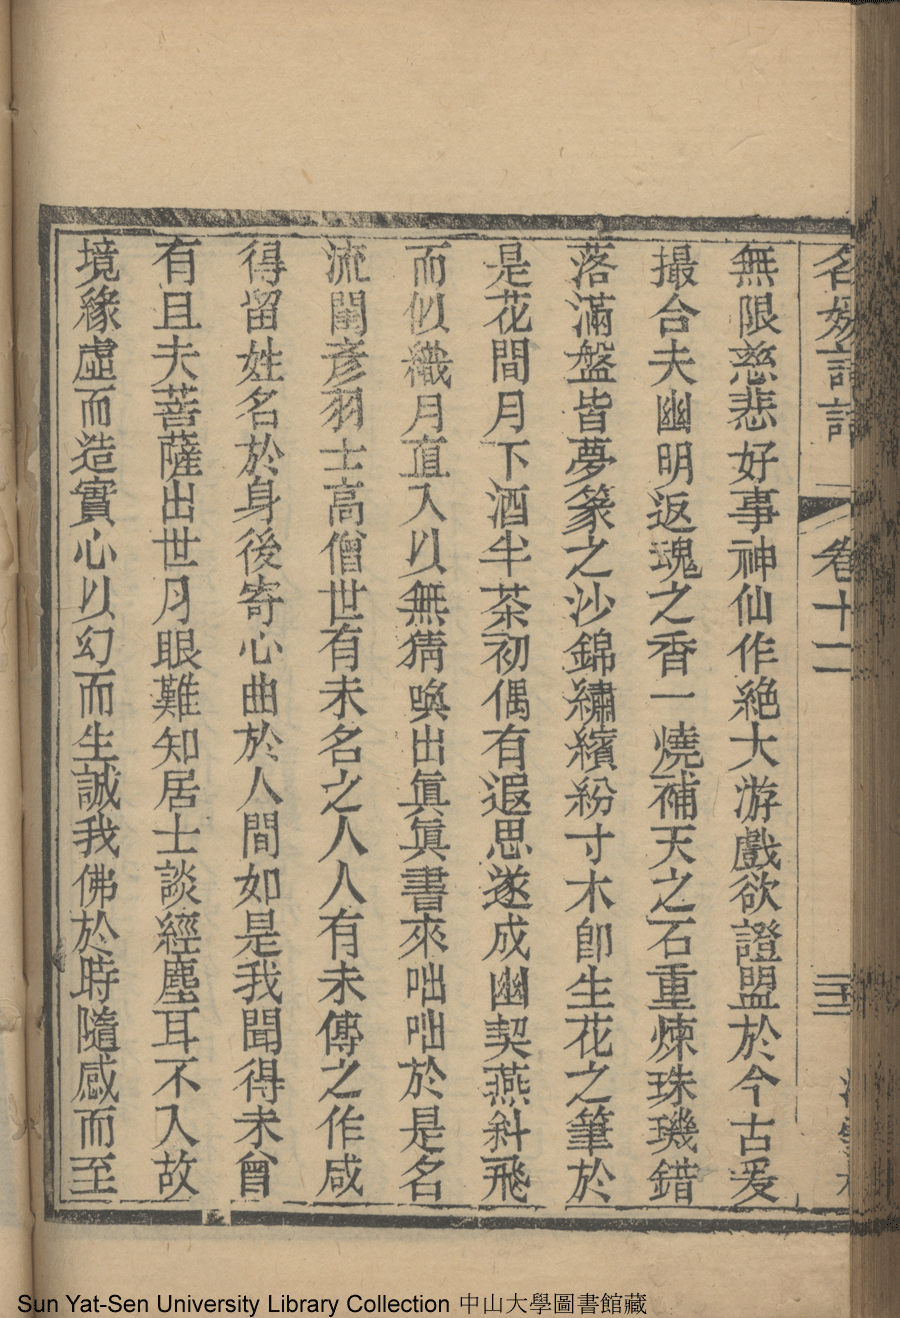 名媛詩話 卷十二
無限慈悲好事神仙作絕大游戲欲證盟於今古爰
撮合夫幽明返魂之香一燒補天之石重煉珠璣錯
落滿盤皆夢篆之沙錦繡繽紛寸木卽生花之筆於
是花間月下酒半茶初偶有遐思遂成幽契燕斜飛
而似織月直入以無猜喚出眞眞書來咄咄於是名
流閨彥羽士高僧世有未名之人人有未傳之作咸
得留姓名於身後寄心曲於人間如是我聞得未曾
有且夫菩薩出世月眼難知居士談經塵耳不入故
境緣虛而造實心以幻而生誠我佛於時隨感而至
Sun Yat-Sen University Library Collection 中山大學圖書館藏